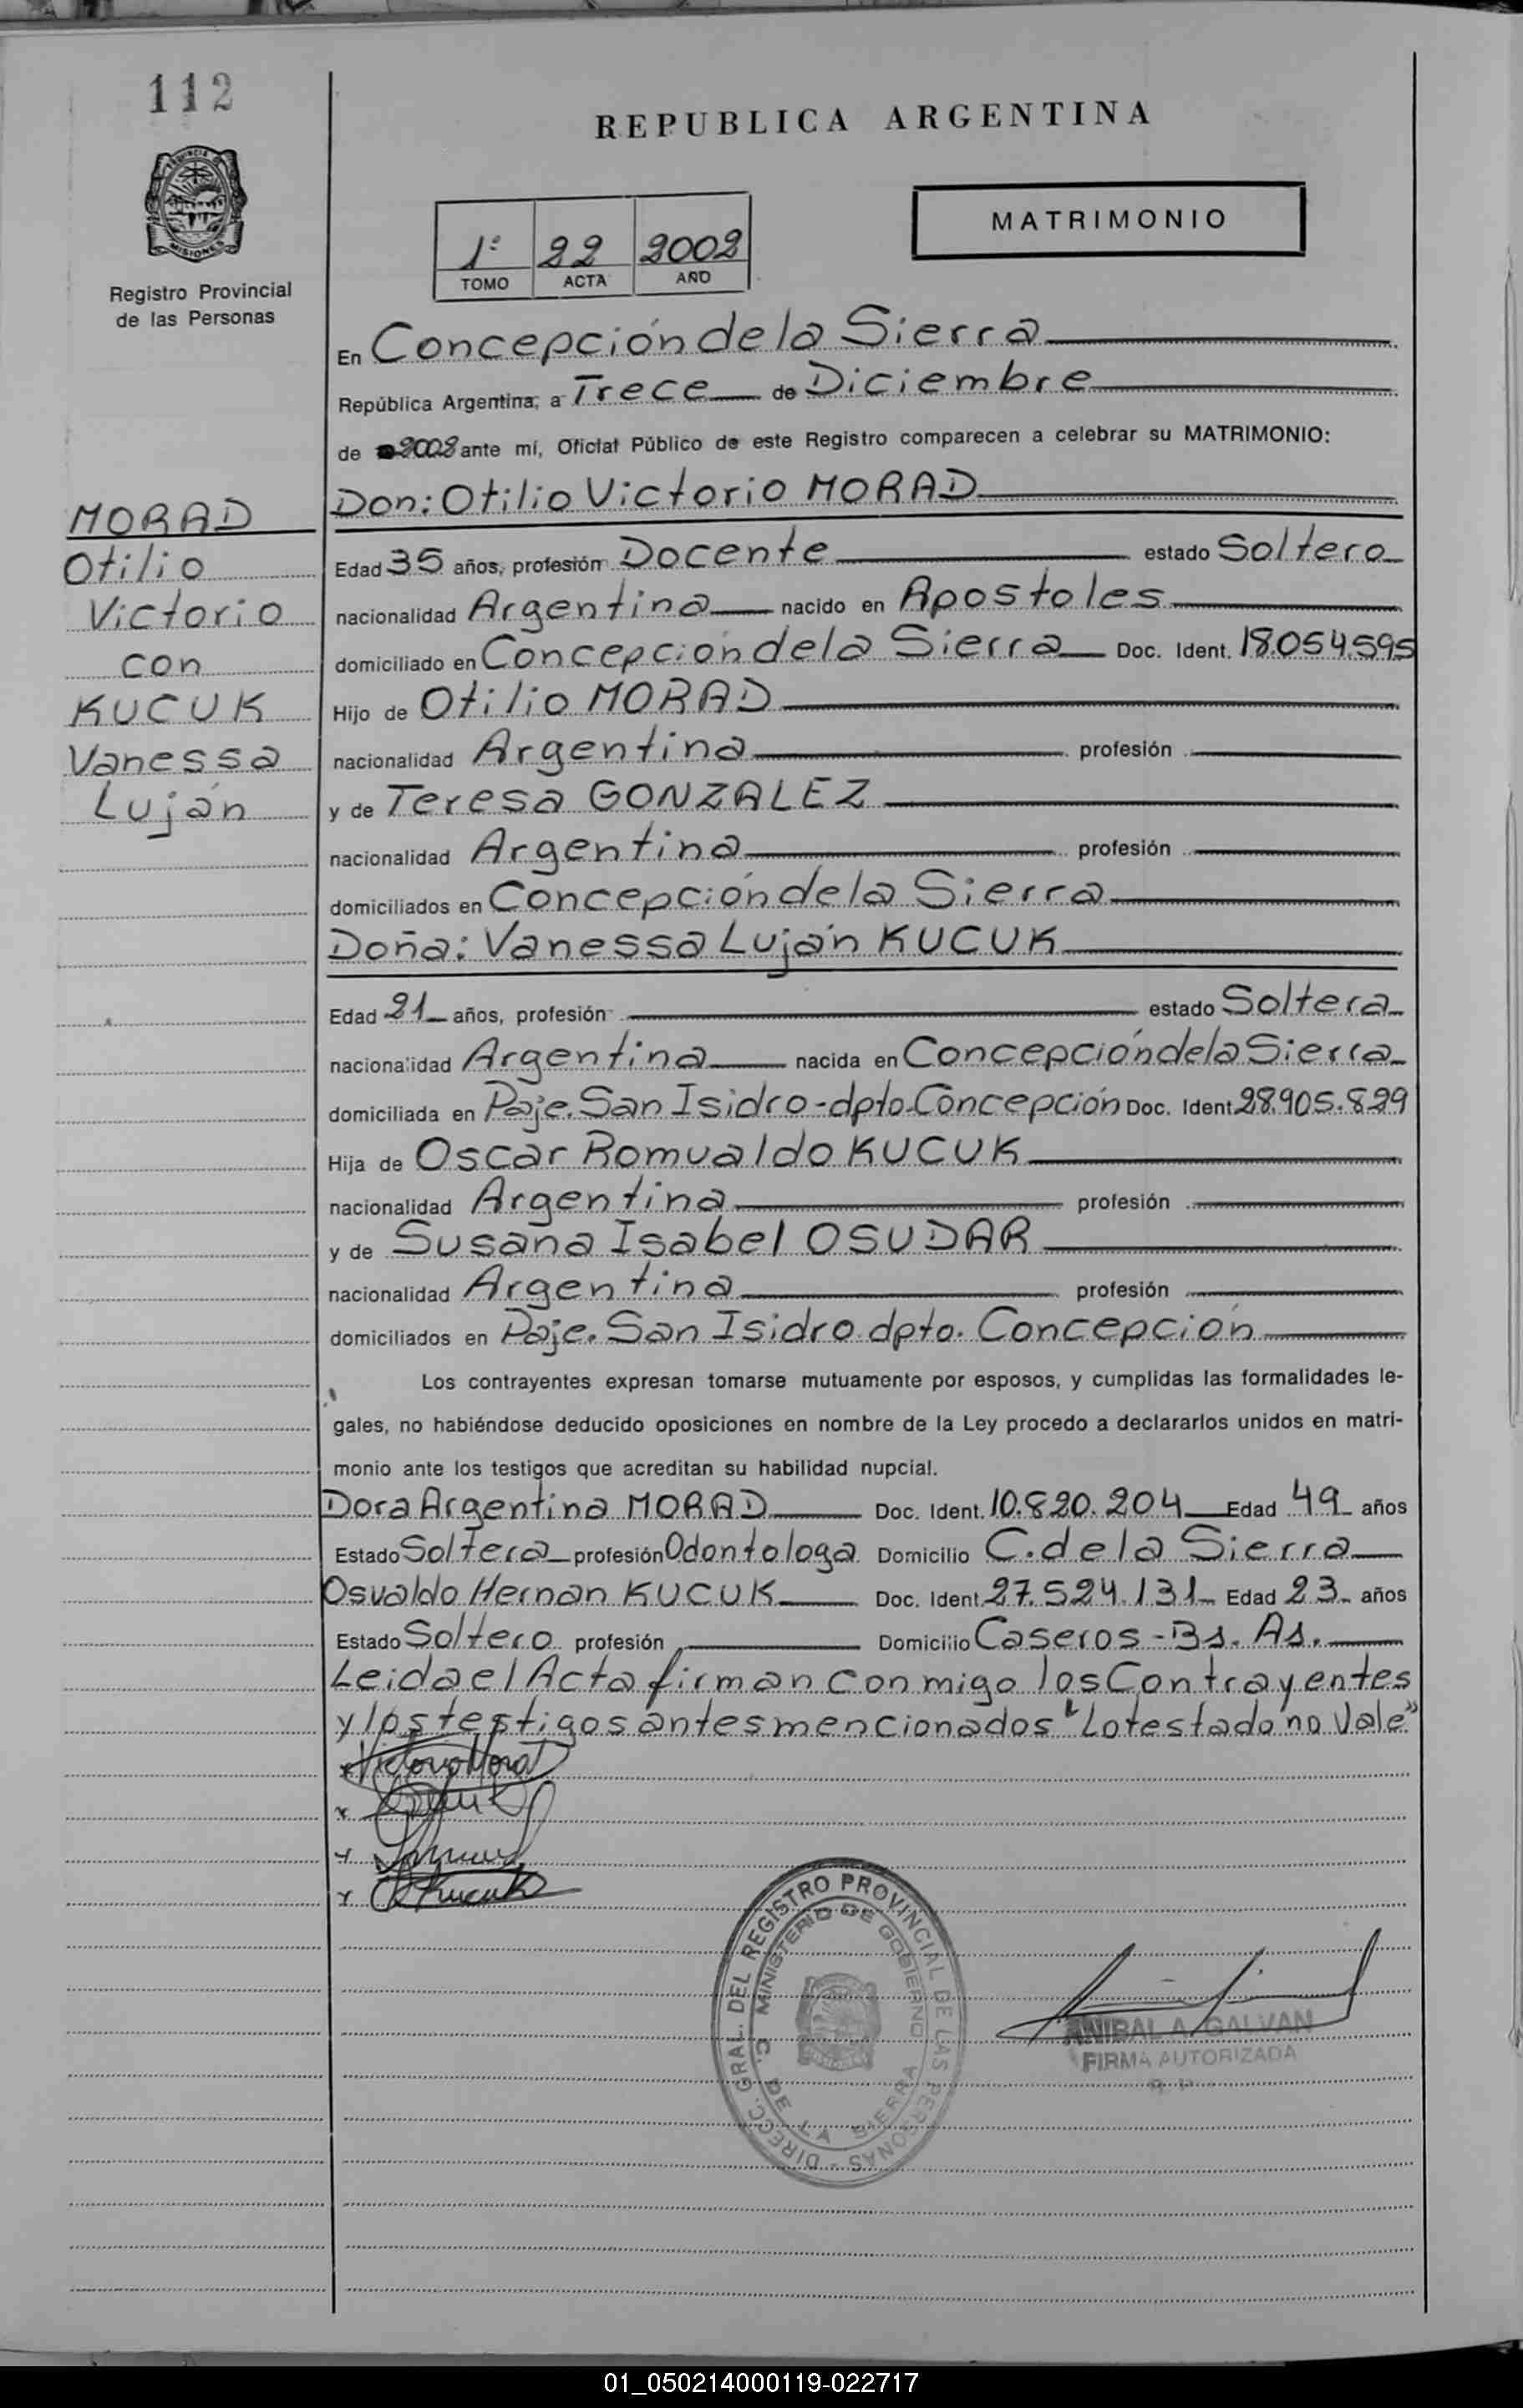 112
REPUBLICA ARGENTINA
PROVINCIA DE
MISIONES
Registro Provincial
de las Personas
1º 22 2002
TOMO ACTA AÑO
MATRIMONIO
En Concepción de la Sierra
República Argentina, a Trece de Diciembre
de 2002 ante mí, Oficial Público de este Registro comparecen a celebrar su MATRIMONIO:
MORAD
Otilio
Victorio
con
KUCUK
Vanessa
Luján
Don: Otilio Victorio MORAD
Edad 35 años, profesión Docente estado Soltero
nacionalidad Argentina nacido en Apostoles
domiciliado en Concepción de la Sierra Doc. Ident. 18.054.595
Hijo de Otilio MORAD
nacionalidad Argentina profesión
y de Teresa GONZALEZ
nacionalidad Argentina profesión
domiciliados en Concepción de la Sierra
Doña: Vanessa Luján KUCUK
Edad 21 años, profesión estado Soltera
nacionalidad Argentina nacida en Concepción de la Sierra
domiciliada en Paje. San Isidro-dpto. Concepción Doc. Ident. 28.905.829
Hija de Oscar Romualdo KUCUK
nacionalidad Argentina profesión
y de Susana Isabel OSUDAR
nacionalidad Argentina profesión
domiciliados en Paje. San Isidro dpto. Concepción
Los contrayentes expresan tomarse mutuamente por esposos, y cumplidas las formalidades le-
gales, no habiéndose deducido oposiciones en nombre de la Ley procedo a declararlos unidos en matri-
monio ante los testigos que acreditan su habilidad nupcial.
Dora Argentina MORAD Doc. Ident. 10.820.204 Edad 49 años
Estado Soltera profesión Odontologa Domicilio C. de la Sierra
Osvaldo Hernan KUCUK Doc. Ident. 27.524.131 Edad 23 años
Estado Soltero profesión Domicilio Caseros - Bs. As.
Leida el Acta firman conmigo los Contrayentes
y los testigos antes mencionados "Lo testado no Vale"
Victorio Morad
Kucuk
DIRECC. GRAL. DEL REGISTRO PROVINCIAL DE LAS PERSONAS -
MINISTERIO DE GOBIERNO
C. DE LA SIERRA
ANIBAL A. GALVAN
FIRMA AUTORIZADA
01_050214000119-022717